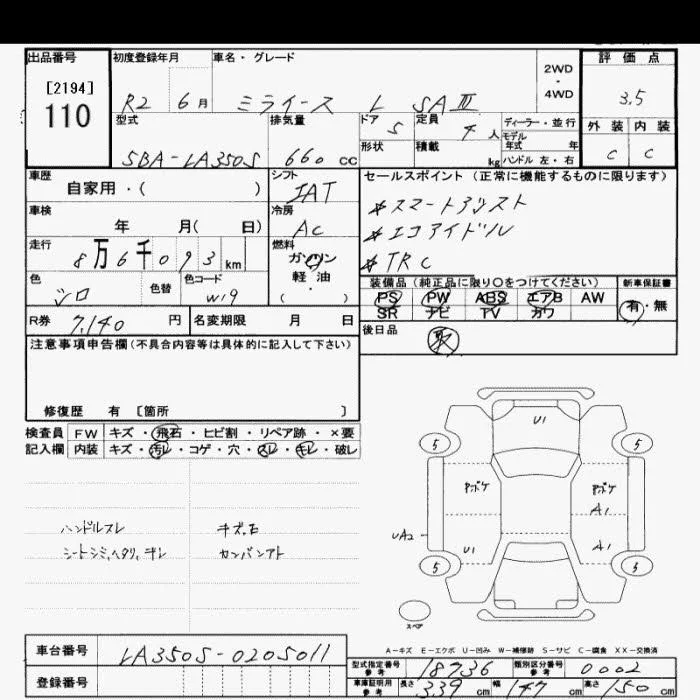 出品番号 初度登録年月 車名・グレード 2WD・4WD 評価点
[2194]
110
R2 6月 ミライース L SAⅢ 3.5
型式 排気量 ドア 5 定員 4人 ディーラー・並行 外装 内装
モデル年式 年
5BA-LA350S 660cc 形状 積載 kg ハンドル 左・右 C C
車歴 シフト セールスポイント (正常に機能するものに限ります)
自家用・( ) IAT
車検 冷房 スマートアシスト
年 月( 日) AC エコアイドル
走行 燃料 TRC
8万6千093km ガソリン
軽油
( )
色 色替 色コード 装備品 (純正品に限り○をつけてください) 新車保証書
シロ W19 PS PW ABS エアB AW 有・無
SR ナビ TV カワ
R券 7,140円 名変期限 月 日 後日品
取
注意事項申告欄(不具合内容等は具体的に記入して下さい)
修復歴 有 [箇所 ]
検査員 FW キズ・飛石・ヒビ割・リペア跡・×要
記入欄 内装 キズ・汚レ・コゲ・穴・スレ・キレ・破レ
U1
5 5
Pボケ Pボケ
A1
UA2
U1 A1
5 5
スペア
ハンドルスレ キズ,モ
シートシミ,ヘタリ,キレ カンバンアト
A-キズ E-エクボ U-凹み W-補修跡 S-サビ C-腐食 XX-交換済
車台番号 LA350S-0205011
登録番号
型式指定番号 参考 18736 類別区分番号 参考 0002
車庫証明用 参考 長さ 339cm 幅 147cm 高さ 150cm